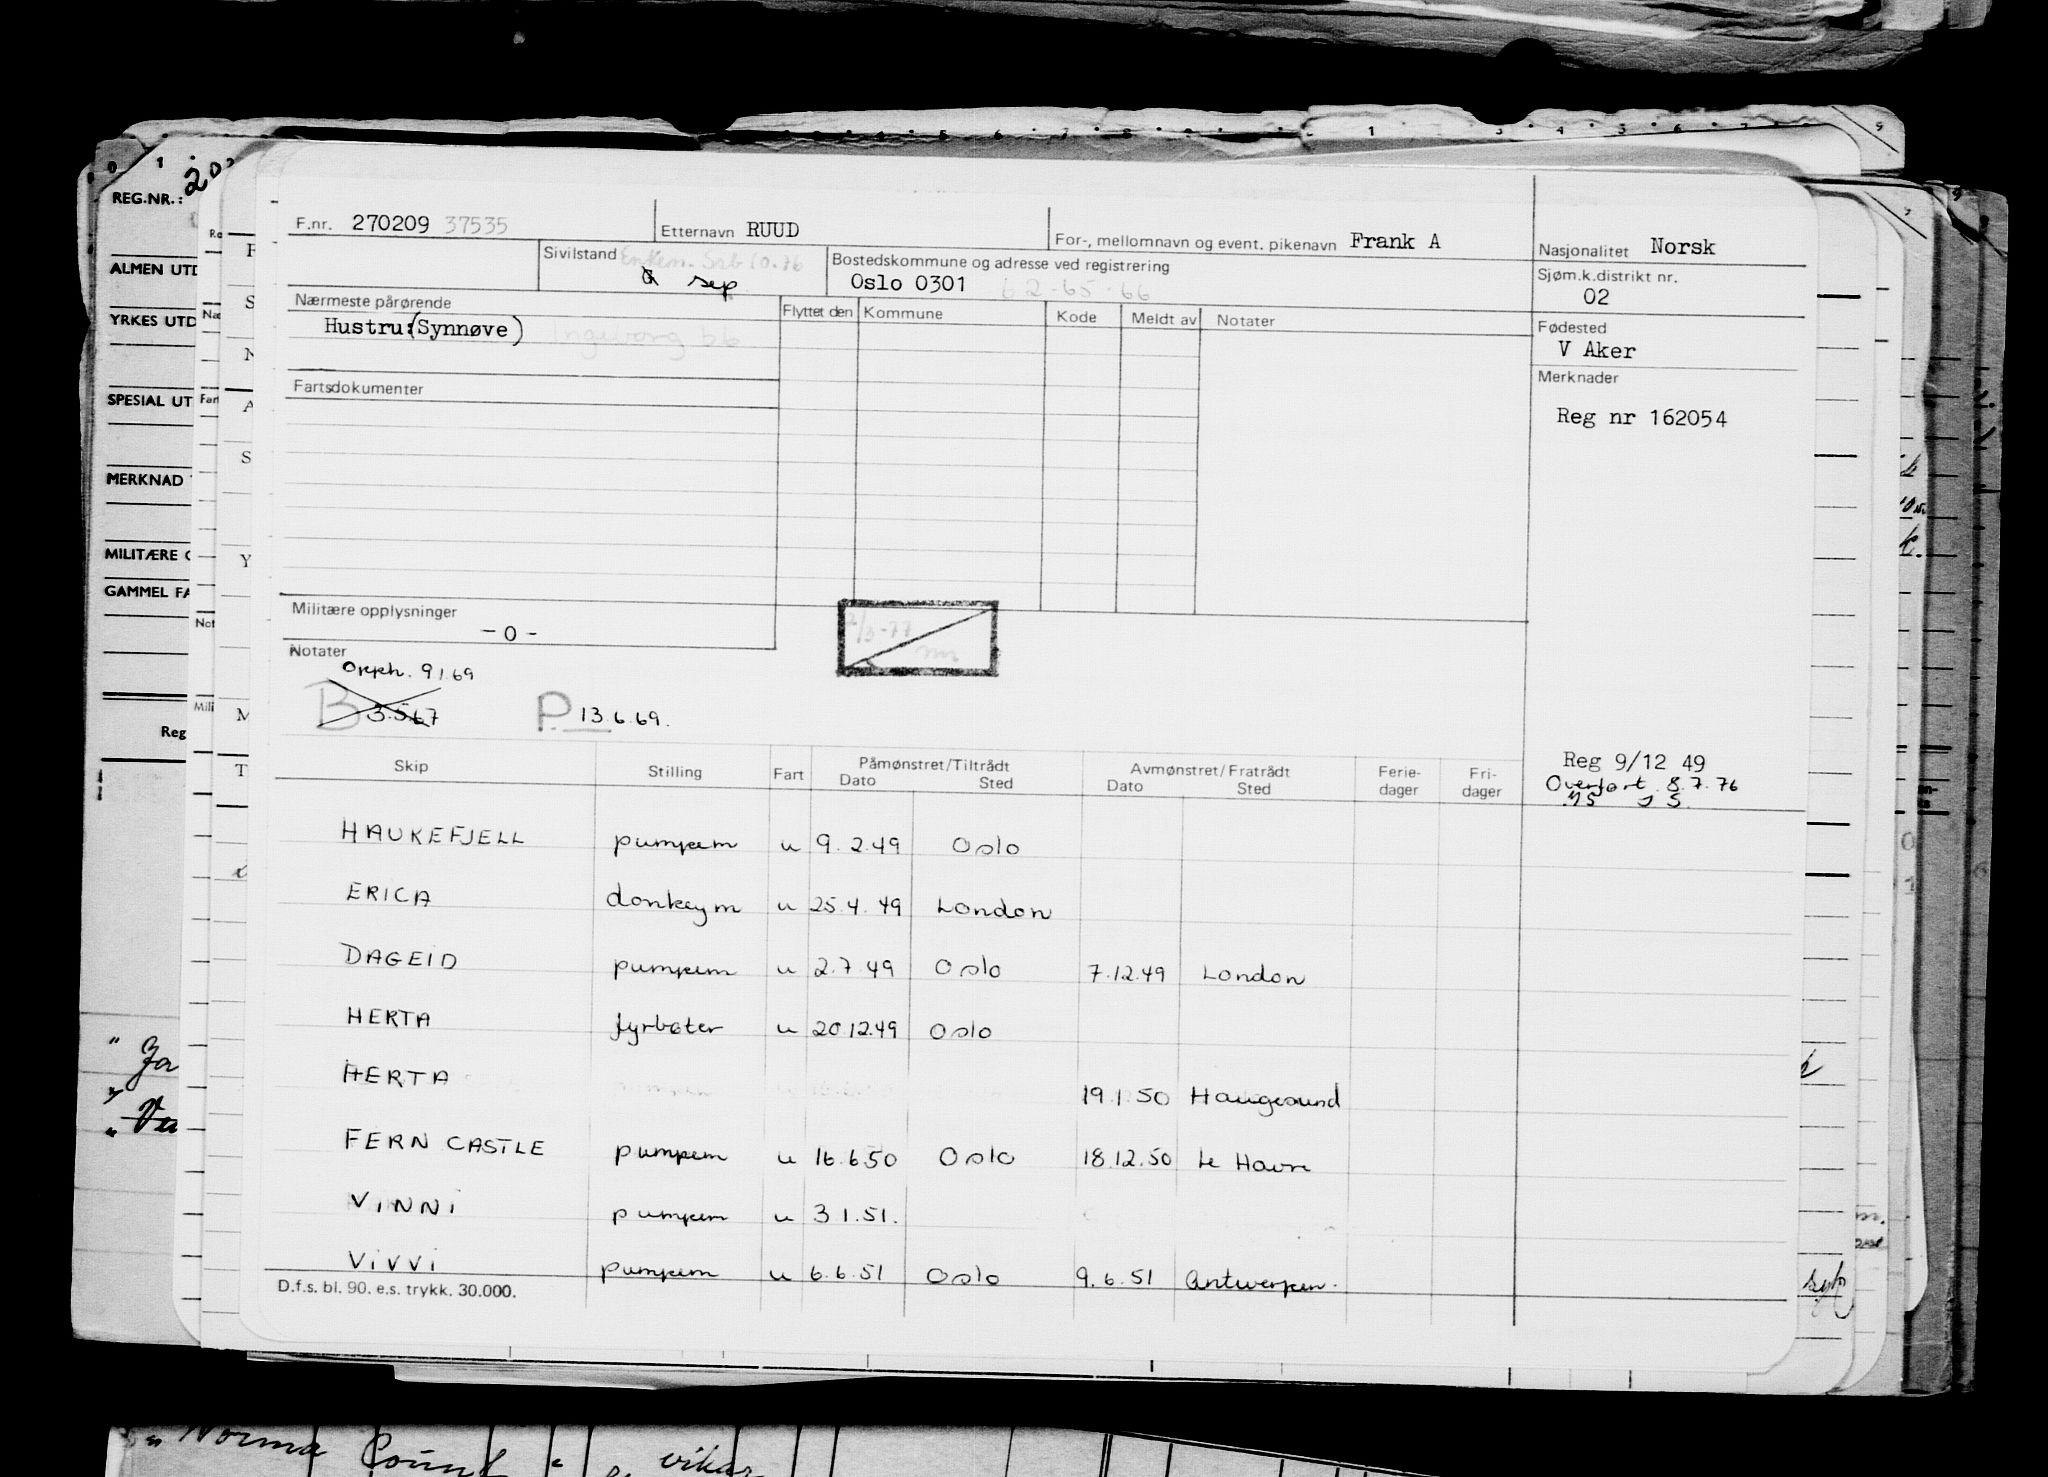 REG.NR.: 20
ALMEN UTD
YRKES UTD
SPESIAL UT
MERKNAD
MILITÆRE
GAMMEL FA
Reg
F.nr. 270209 37535
Etternavn RUUD
For-, mellomnavn og event. pikenavn Frank A
Nasjonalitet Norsk
Sivilstand Enkem. Srb 10.76
G sep
Bostedskommune og adresse ved registrering
Oslo 0301 62-65-66
Sjøm.k.distrikt nr.
02
Nærmeste pårørende
Hustru:(Synnøve) Ingeborg bb
Flyttet den Kommune Kode Meldt av Notater
Fødested
V Aker
Fartsdokumenter
Merknader
Reg nr 162054
Militære opplysninger
-o-
Notater
Orph. 9 1.69
B 3.5.67 P 13.6.69.
/3-77
Reg 9/12 49
Overført 8.7.76
Skip Stilling Fart Påmønstret/Tiltrådt Avmønstret/Fratrådt Ferie-dager Fri-dager
Dato Sted Dato Sted
HAUKEFJELL pumpem u 9.2.49 Oslo
ERICA donkeym u 25.4.49 London
DAGEID pumpem u 2.7.49 Oslo 7.12.49 London
HERTA fyrbøter u 20.12.49 Oslo
HERTA 19.1.50 Haugesund
FERN CASTLE pumpem u 16.6.50 Oslo 18.12.50 Le Havre
VINNI pumpem u 3 1.51.
VIVVI pumpem u 6.6.51 Oslo 9.6.51 Antwerpen.
D.f.s. bl. 90. e.s. trykk. 30.000.
" Norma